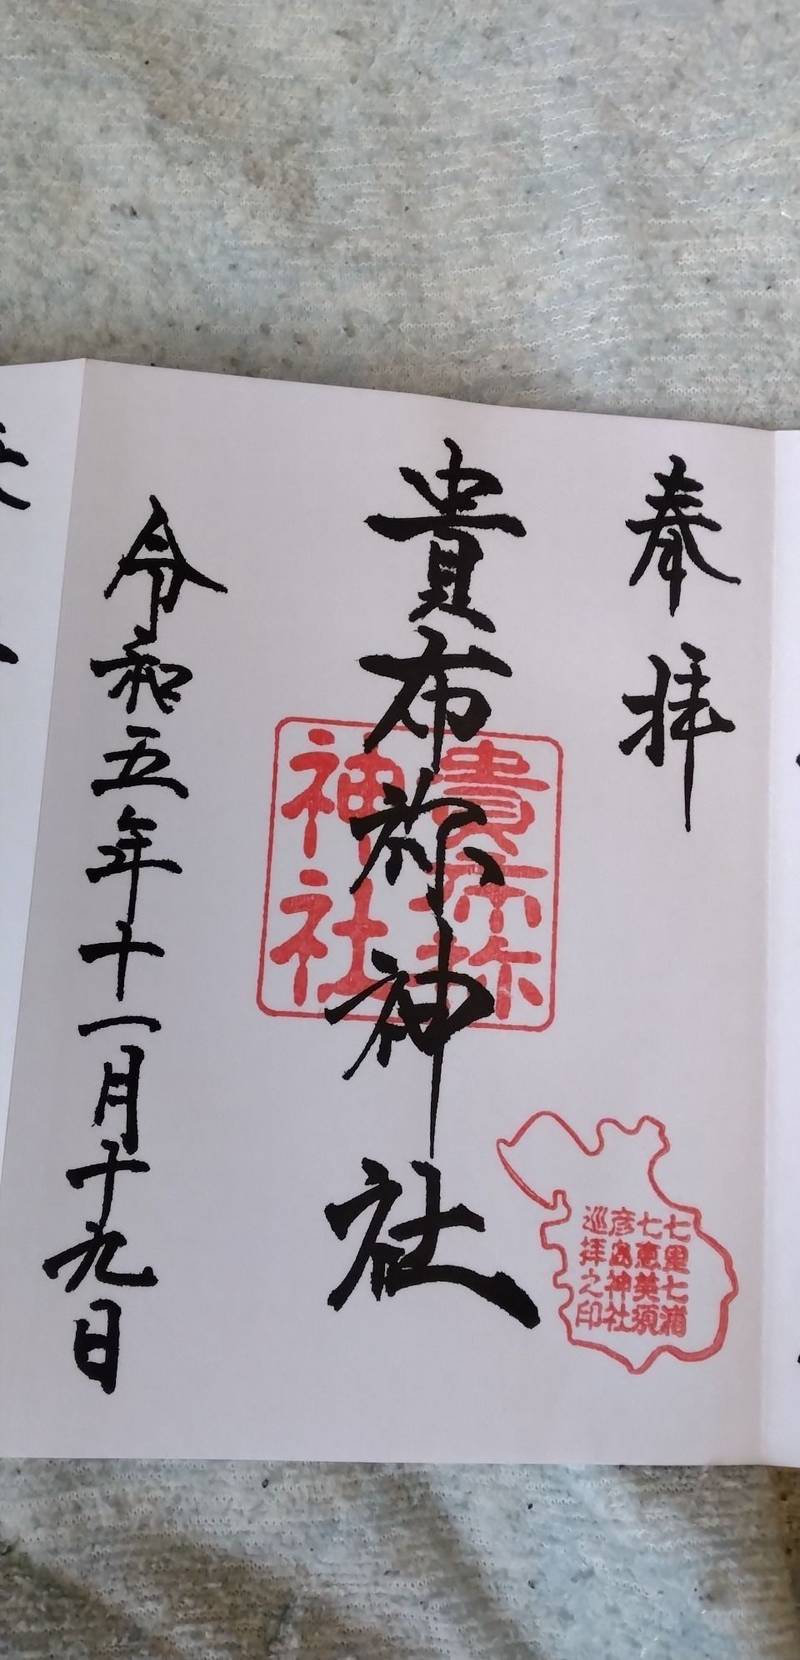 奉拝
貴布祢神社
貴布祢
神社
七里七浦
七恵美須
彦島神社
巡拝之印
令和五年十一月十九日